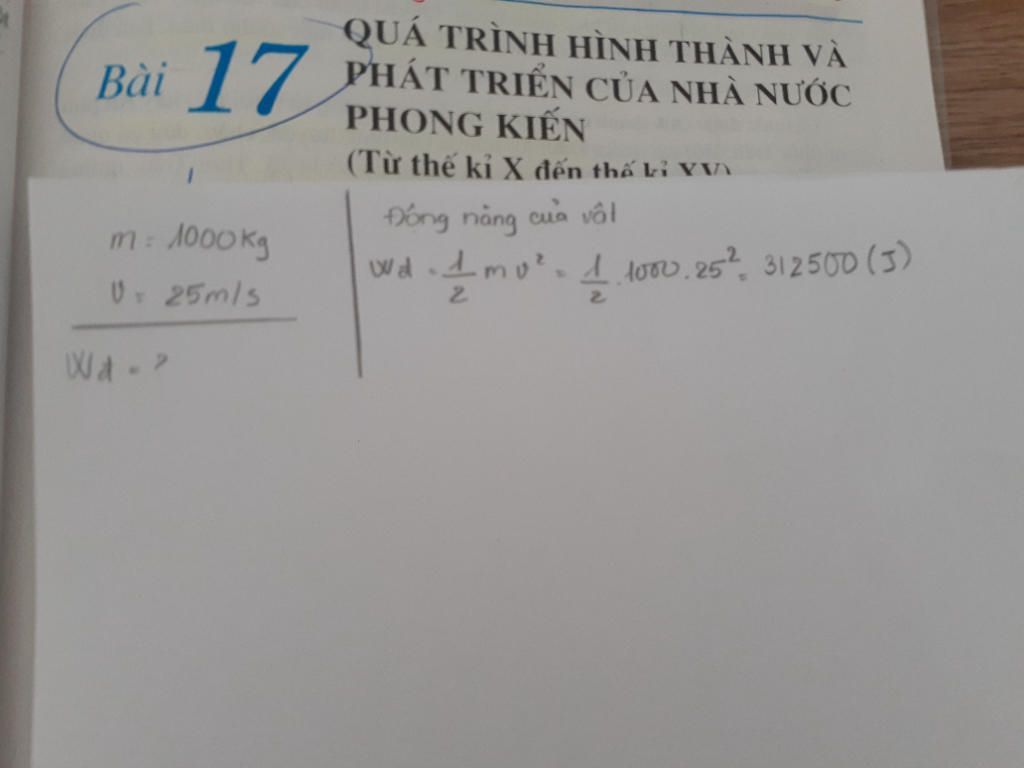 Bài 17
QUÁ TRÌNH HÌNH THÀNH VÀ
PHÁT TRIỂN CỦA NHÀ NƯỚC
PHONG KIẾN
(Từ thế kỉ X đến thế kỉ XV)
m = 1000kg
v = 25m/s
Wđ = ?
Động năng của vật
Wđ = 1/2 m v² = 1/2 . 1000 . 25² = 312500 (J)